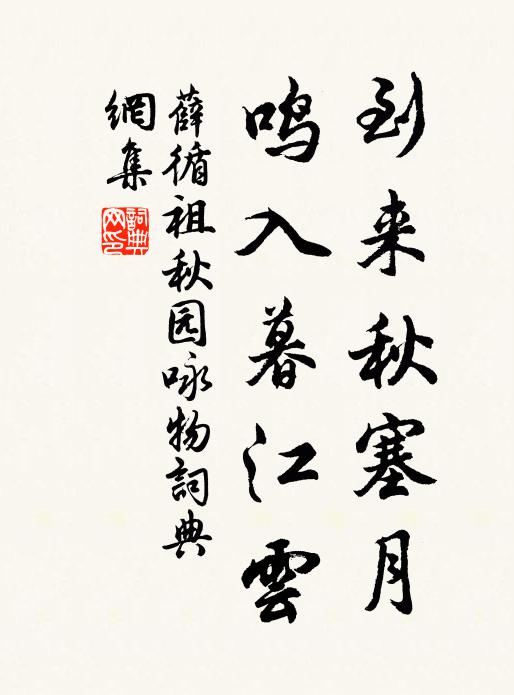 到来秋塞月
鸣入暮江雲
薛循祖秋园咏物詞典
網集
詞典
网印